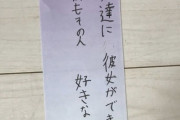 達に彼女ができ
もその人
好きな